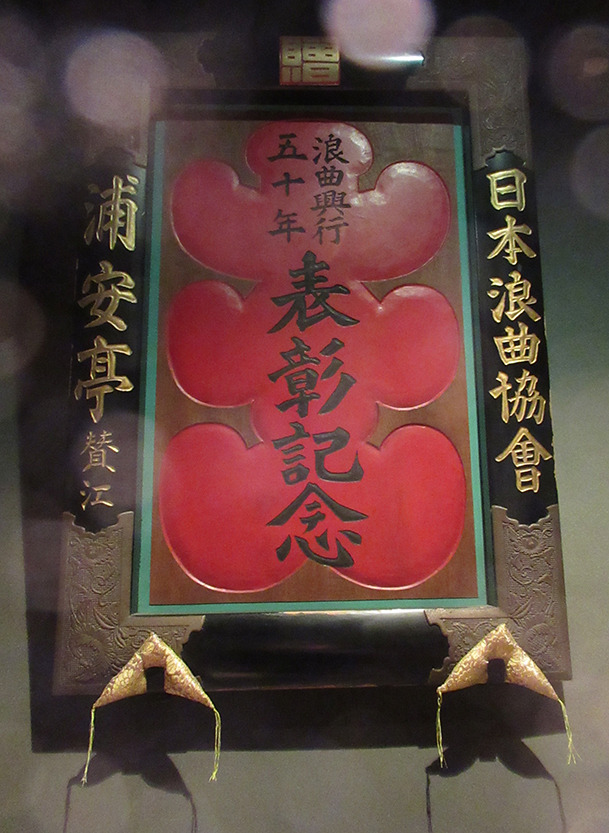 贈
日本浪曲協會
浪曲興行
五十年
表彰記念
浦安亭
賛江